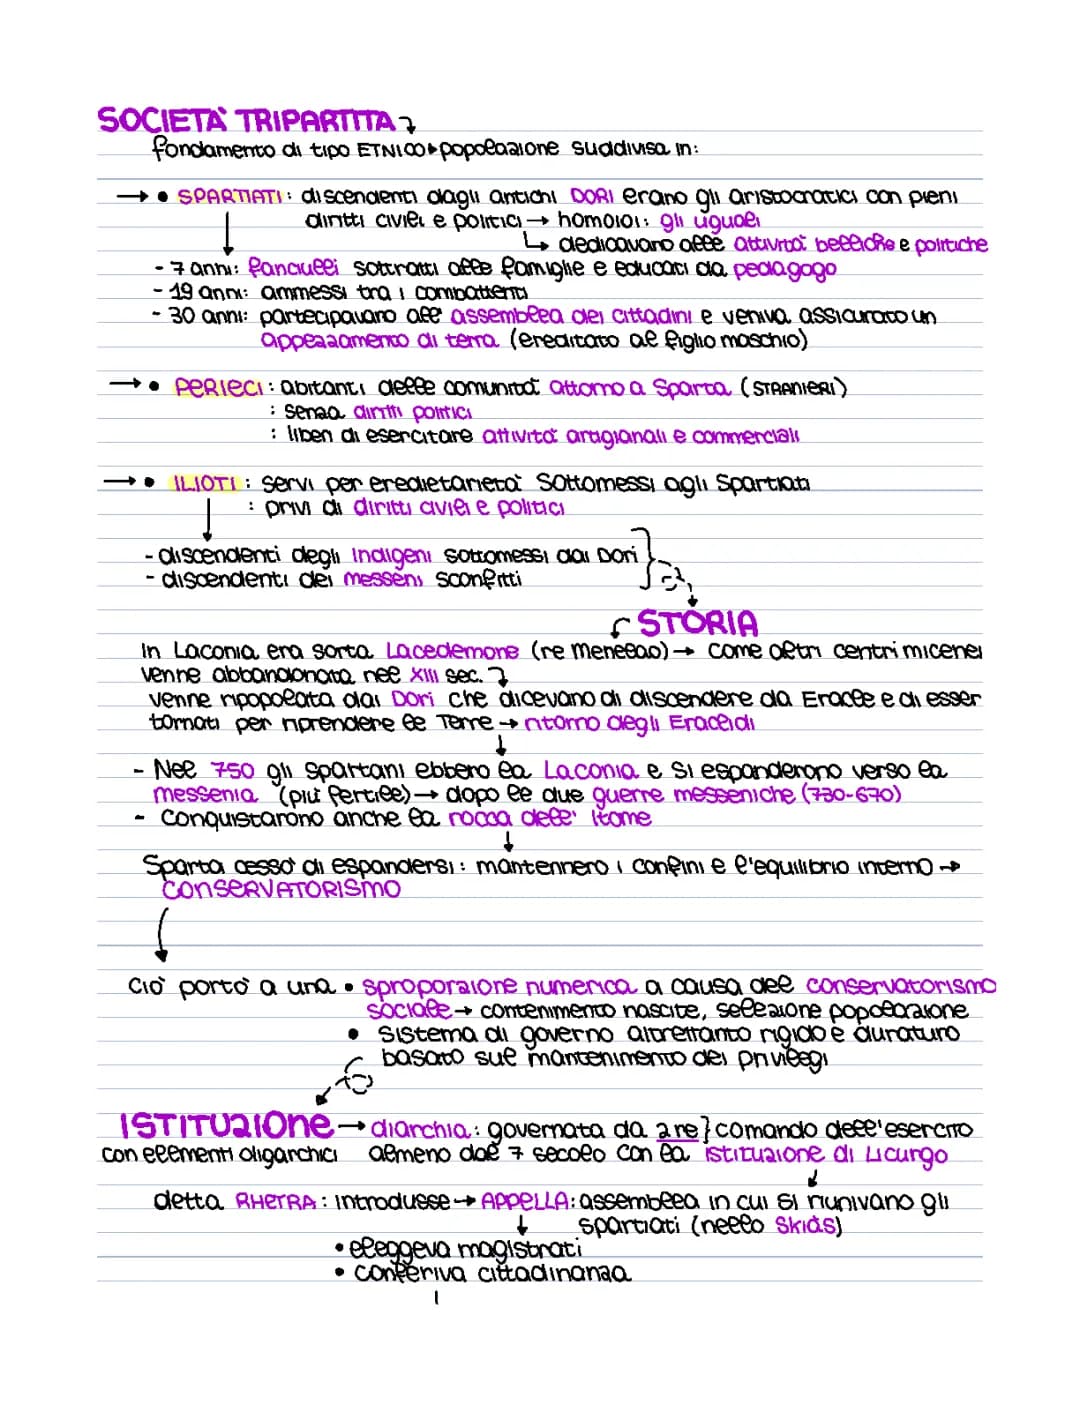 SOCIETÀ TRIPARTITA
fondamento di tipo ETNICO popolazione suddivisa in:
→ • SPARTIATI: discendenti dagli antichi DORI erano gli aristocratici con pieni
diritti civili e politici → homoioi: gli uguali
↳ dedicavano alle attività belliche e politiche
- 7 anni: fanciulli sottratti alle famiglie e educati da pedagogo
- 19 anni: ammessi tra i combattenti
- 30 anni: partecipavano all'assemblea dei cittadini e veniva assicurato un
appezzamento di terra (ereditato al figlio maschio)
→ • PERIECI: abitanti delle comunità attorno a Sparta (STRANIERI)
: senza diritti politici
: liberi di esercitare attività artigianali e commerciali
→ • ILIOTI: servi per ereditarietà sottomessi agli Spartiati
: privi di diritti civili e politici
- discendenti degli indigeni sottomessi dai Dori
- discendenti dei messeni sconfitti
STORIA
In Laconia era sorta Lacedemone (re Menelao) → come altri centri micenei
venne abbandonata nel XIII sec.
venne ripopolata dai Dori che dicevano di discendere da Eracle e di esser
tornati per riprendere le Terre → ritorno degli Eraclidi
- Nel 750 gli spartani ebbero la Laconia e si espanderono verso la
messenia (più fertile) → dopo le due guerre messeniche (730-670)
- Conquistarono anche la rocca dell' Itome
Sparta cessò di espandersi: mantennero i confini e l'equilibrio interno →
CONSERVATORISMO
Ciò portò a una • sproporzione numerica a causa del conservatorismo
sociale → contenimento nascite, selezione popolazione
• sistema di governo altrettanto rigido e duraturo
basato sul mantenimento dei privilegi
ISTITUZIONE → diarchia: governata da 2 re} comando dell'esercito
con elementi oligarchici almeno dal 7 secolo con la istituzione di Licurgo
detta RHETRA: introdusse → APPELLA: assemblea in cui si riunivano gli
spartiati (nello Skias)
• eleggeva magistrati
• conferiva cittadinanza